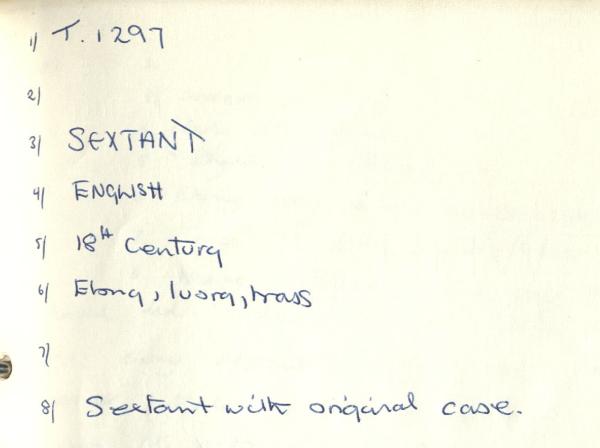 1/ T. 1297
2/
3/ SEXTANT
4/ ENGLISH
5/ 18th Century
6/ Ebony, Ivory, brass
7/
8/ Sextant with original case.